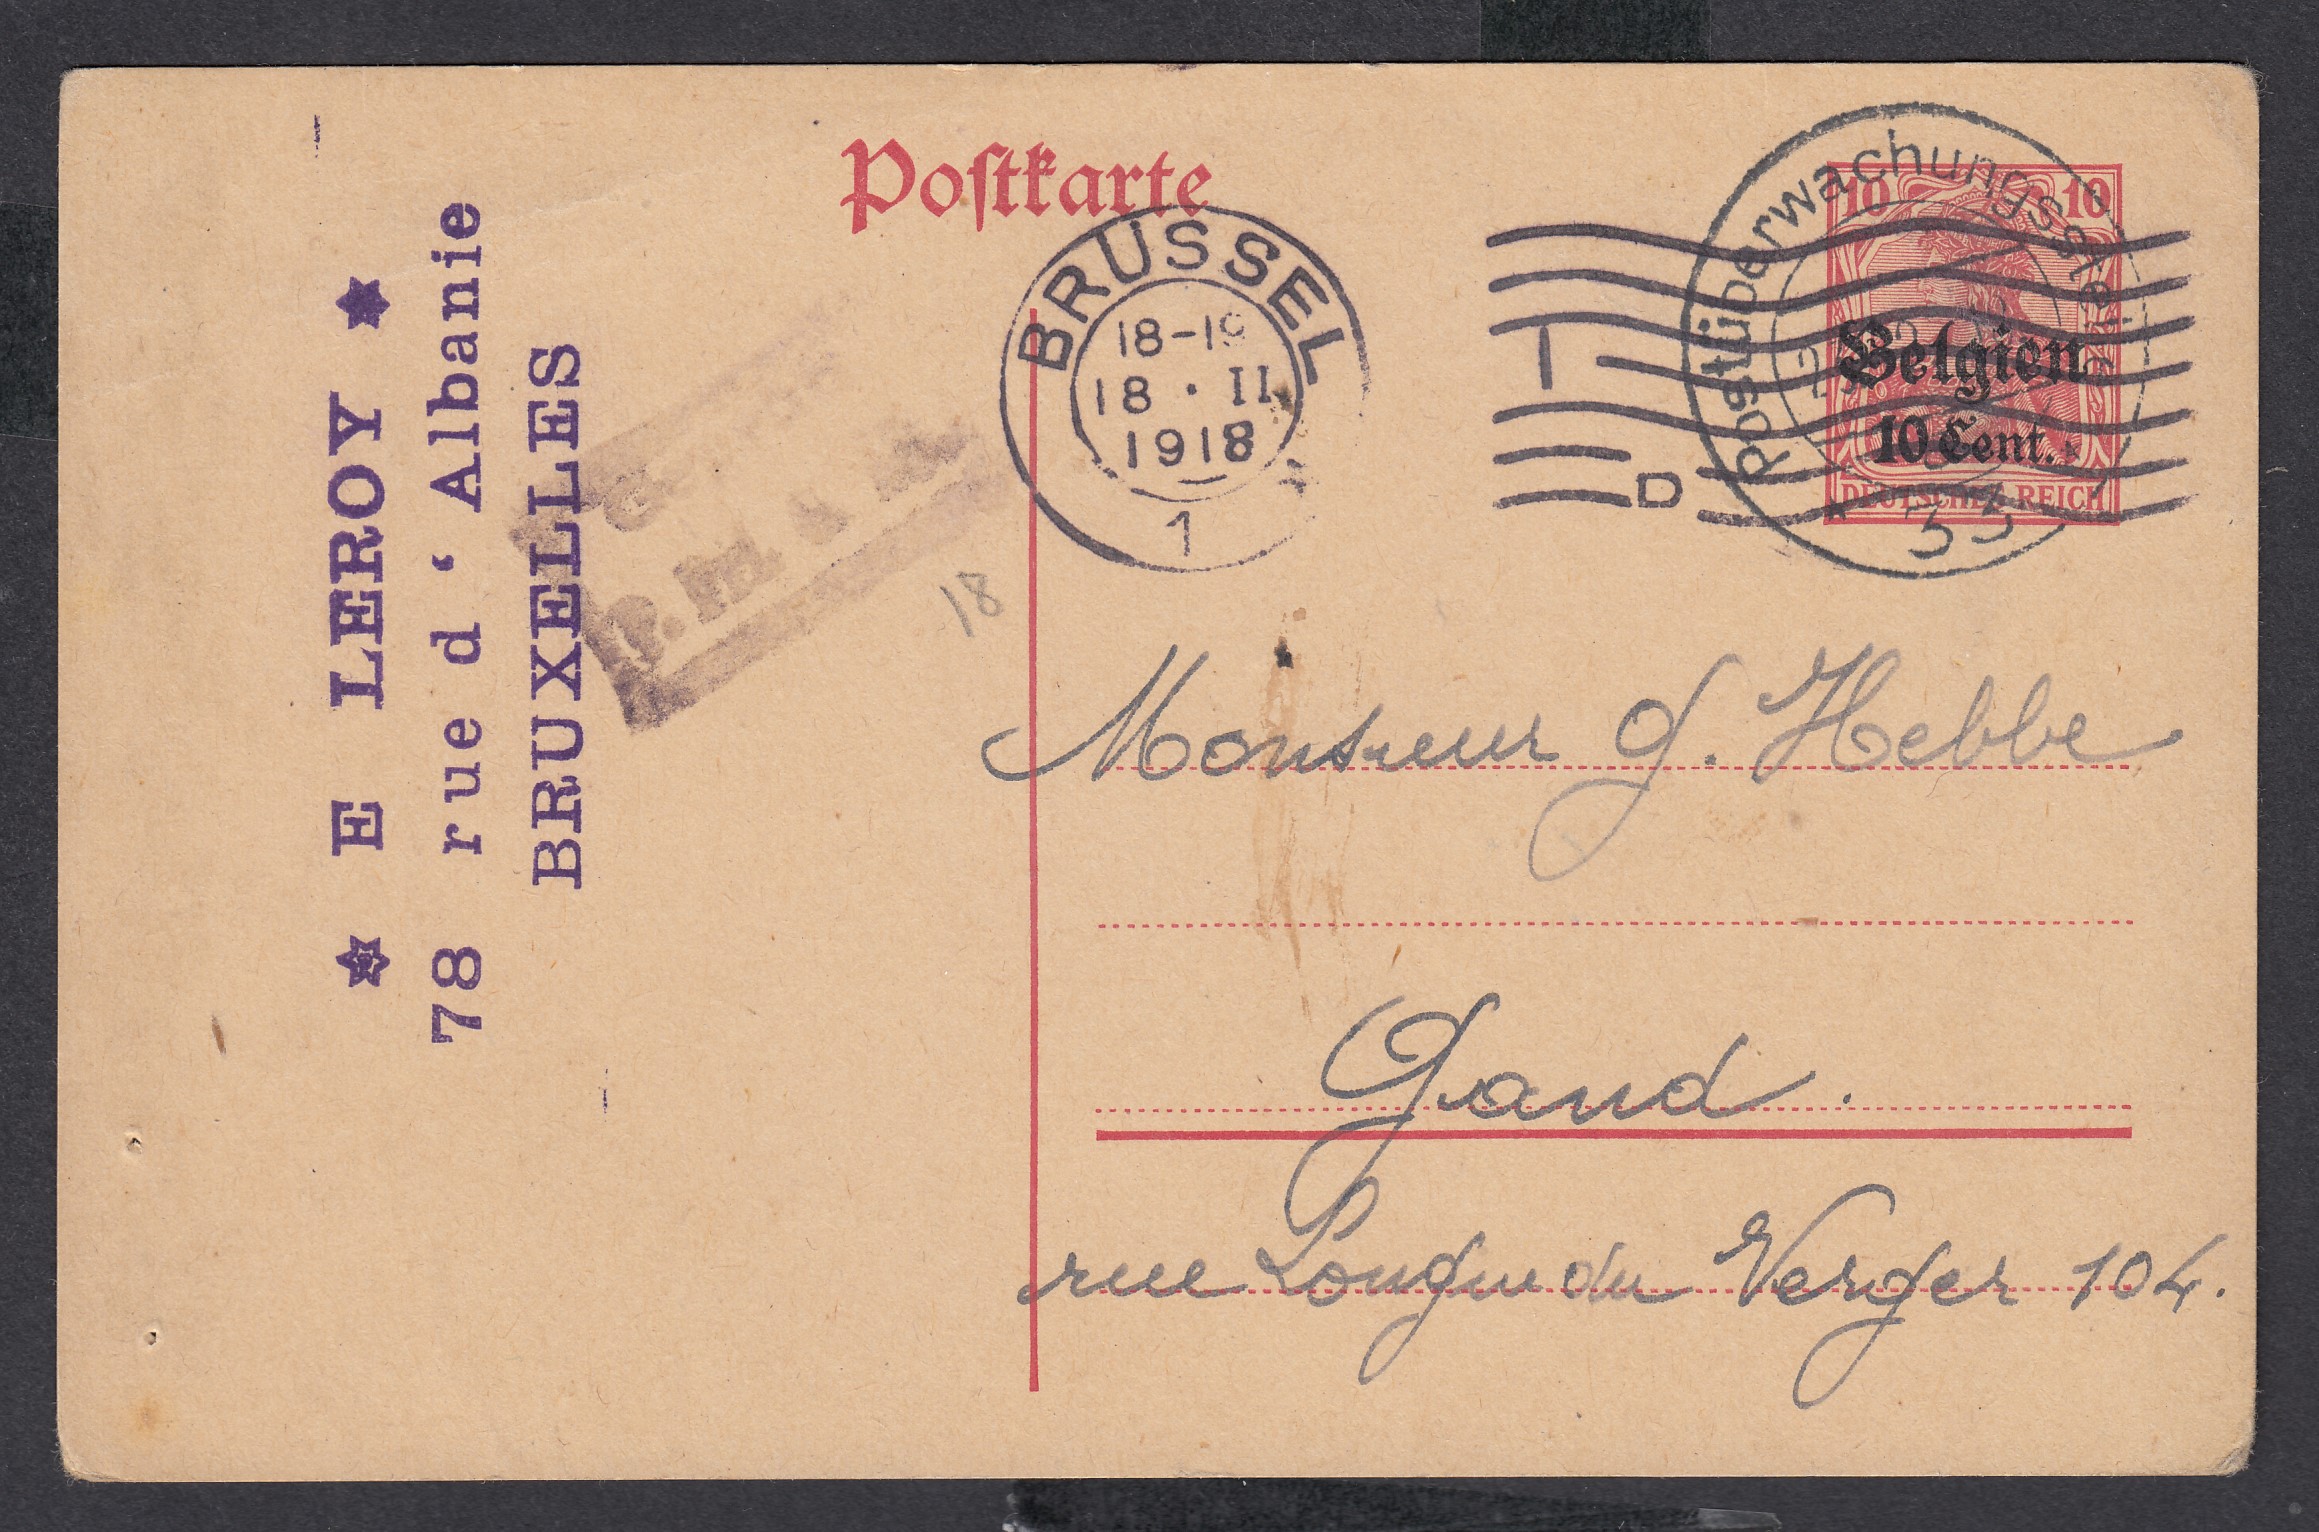 Postkarte
✶ E LEROY ✶
78 rue d'Albanie
BRUXELLES
BRÜSSEL
18-19
18 · II
1918
1
D
Postüberwachungsstelle
33
10 10
Belgien
10 Cent.
DEUTSCHES REICH
18
Monsieur G. Hebbe
Gand.
rue Longue du Verger 104.